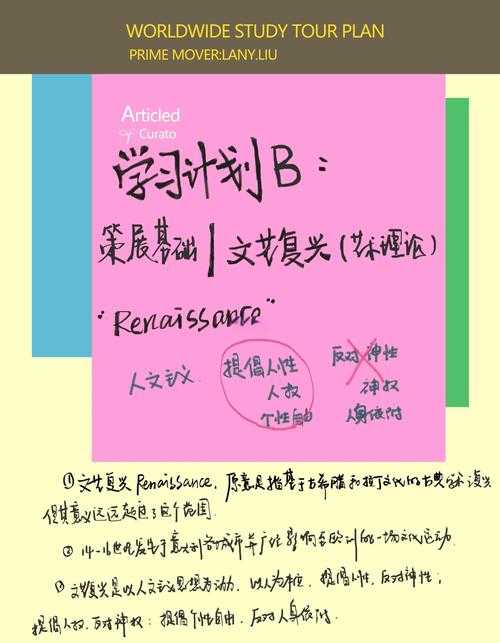 WORLDWIDE STUDY TOUR PLAN
PRIME MOVER:LANY.LIU
Articled
Curato
学习计划B：
策展基础|文艺复兴(艺术理论)
"Renaissance"
人文主义 提倡人性 反对神性
人权 神权
个性自由 人身依附
①文艺复兴Renaissance,原意是指基于古希腊和拉丁文化的古典学术复兴
但其意义远远超过了这个范围.
②14-16世纪发生于意大利各城市并广泛影响全欧洲的一场文化运动.
③文艺复兴是以人文主义思想为动力,以人为本位,提倡人性,反对神性;
提倡人权,反对神权;提倡个性自由,反对人身依附.